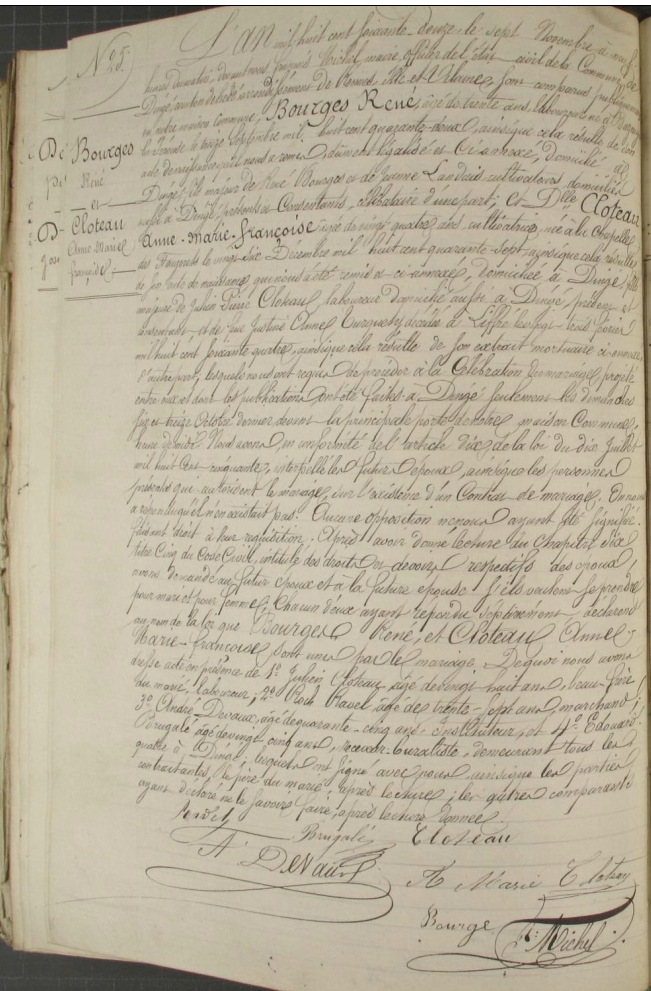 N° 25.
De Bourges
René
et
D. Cloteau
Anne Marie
françoise
L'AN mil huit cent soixante-douze, le sept Novembre, à neuf
heures du matin, devant nous françois Michel, maire, officier de l'état civil de la Commune de
Dingé, canton de hédé, arrondissement de Rennes, Ille et Vilaine, sont comparus publiquement
en notre maison commune, Bourges René, âgé de trente ans, laboureur, né à
le treize septembre mil huit cent quarante-deux, ainsi que cela résulte de son
acte de naissance qui nous a remis dûment légalisé et ci-annexé, domicilié à
Dingé, fils majeur de René Bourges et de Jeanne Landais cultivateurs, domiciliés
à Dingé, présents et Consentants, célibataire d'une part; et Dlle Cloteau
Anne-Marie-françoise, âgée de vingt quatre ans, cultivatrice, née à la Chapelle
des fougeretz le vingt-six Décembre mil huit cent quarante-sept, ainsi que cela résulte
de son acte de naissance, qui nous a été remis et ci-annexé, domiciliée à Dingé, fille
majeure de Julien Pierre Cloteau, laboureur domicilié aussi à Dingé, présent et
consentant, et de feue Justine Anne Turquety décédée à Liffré le trois février
mil huit cent soixante quatre, ainsi que cela résulte de son extrait mortuaire ci-annexé
d'autre part, lesquels nous ont requis de procéder à la Célébration du mariage projeté
entre eux et dont les publications ont été faites à Dingé seulement les dimanches
six et treize Octobre dernier devant la principale porte de notre maison Commune,
heure de midi. Nous avons, en conformité de l'article dix, de la loi du dix Juillet
mil huit Cent cinquante, interpellé les futurs époux, ainsi que les personnes
présentes qui autorisent le mariage, sur l'existence d'un Contrat de mariage. On nous
a répondu qu'il n'en existait pas. Aucune opposition ne nous ayant été signifiée.
faisant droit à leur réquisition. Après avoir donné lecture du Chapitre Six
titre Cinq du Code Civil, intitulé des droits et devoirs respectifs des époux,
avons demandé au futur époux et à la future épouse s'ils veulent se prendre
pour mari et pour femme; Chacun d'eux ayant répondu séparément, déclarons
au nom de la loi que Bourges René, et Cloteau Anne-
Marie-françoise, sont unis par le mariage. De quoi nous avons
dressé acte en présence de 1° Julien Cloteau, âgé de vingt huit ans, beau-frère
du marié, laboureur; 2° Roch Ravel âgé de trente-sept ans, marchand;
3° André Devaux, âgé de quarante-cinq ans, Instituteur, et 4° Edouard
Brugalé, âgé de vingt cinq ans, receveur-buraliste, demeurant tous les
quatre à Dingé, lesquels ont signé avec nous, ainsi que les parties
contractantes, le père du marié après lecture; les autres comparants
ayant déclaré ne le savoir faire, après lecture donnée.
Brugalé Cloteau
A Devaux
A Marie Cloteau
Bourge
F. Michel